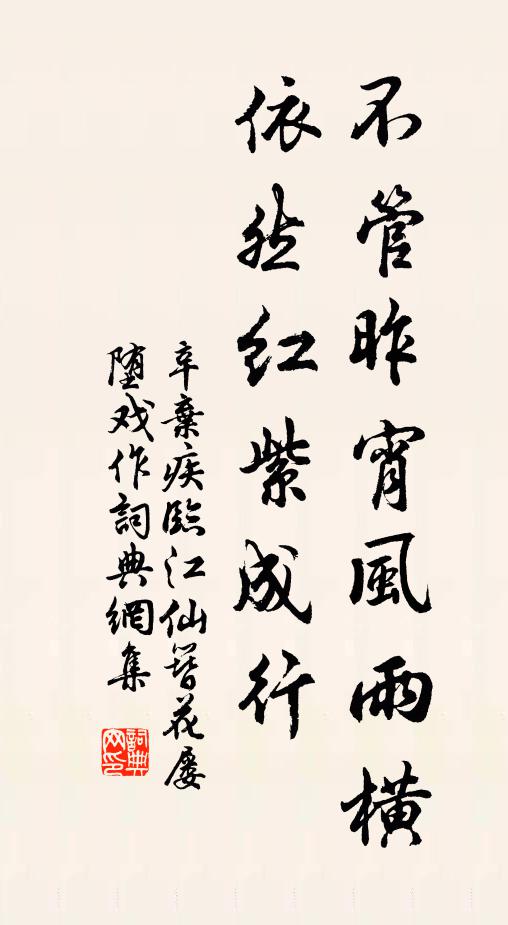 不管昨宵風雨橫
依然紅紫成行
辛棄疾臨江仙簪花屡
堕戏作詞典網集
詞典网印